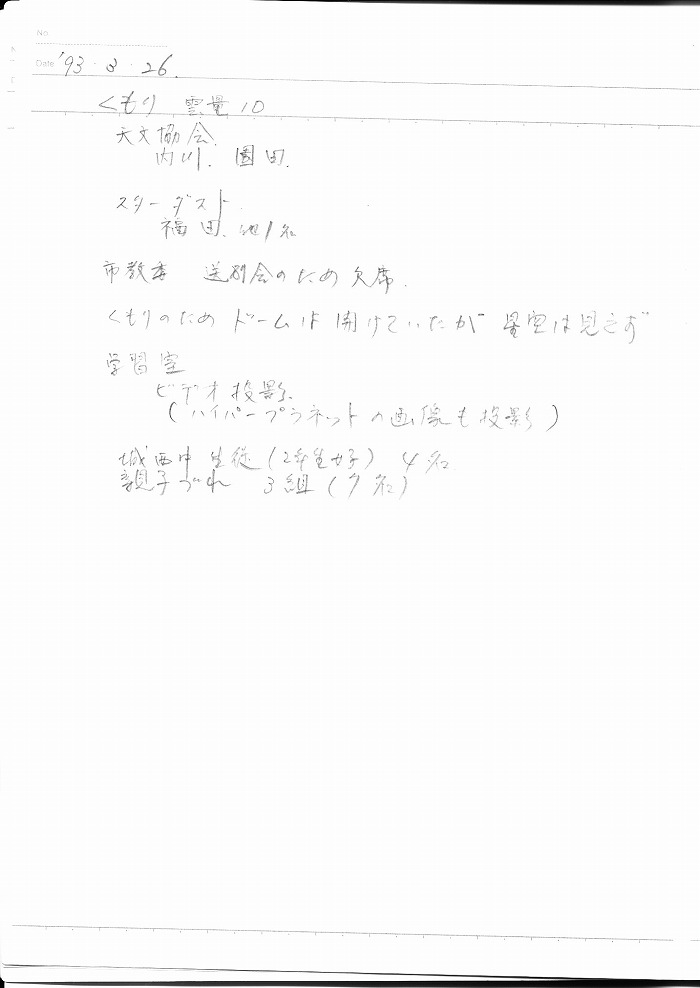 No
Date '93・3・26.
くもり 雲量 10
天文協会.
内川. 園田.
スターダスト.
福田. 他1名
市教委 送別会のため欠席.
くもりのため ドームは開けていたが 星空は見えず
学習室
ビデオ投影.
(ハイパープラネットの画像も投影)
城西中 生徒(2年生女子) 4名
親子づれ 3組(7名)